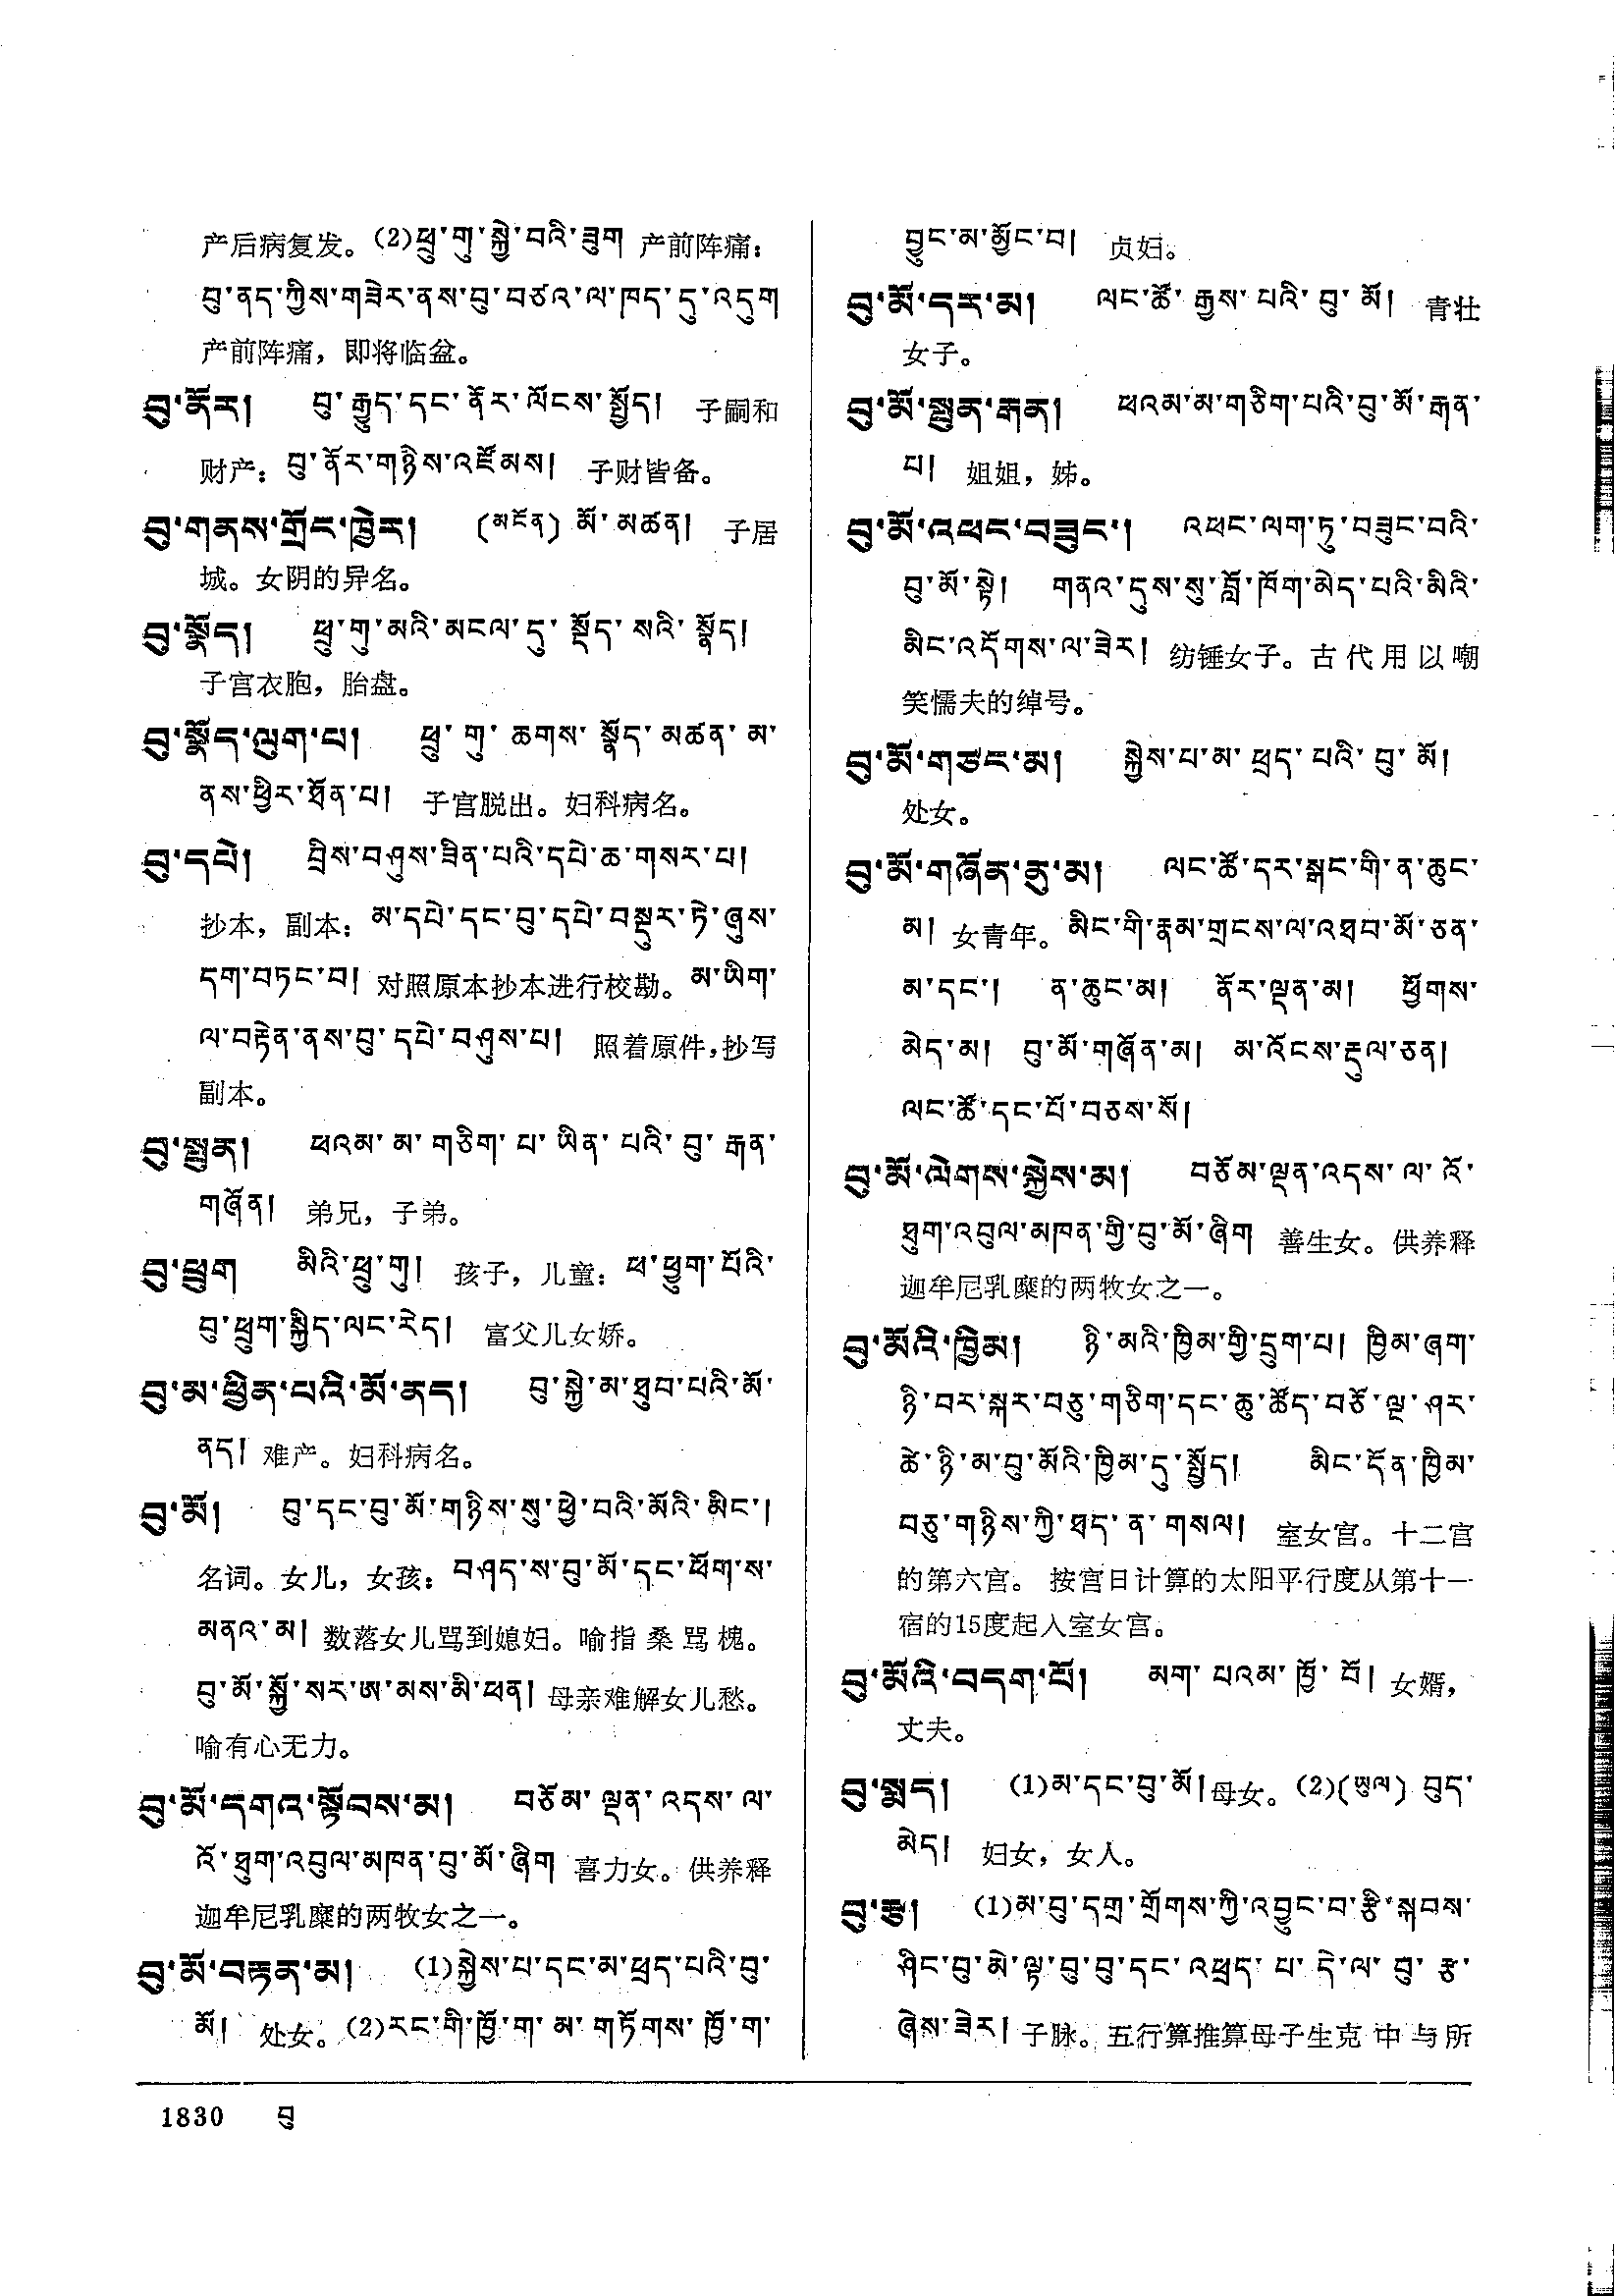 产后病复发。(2)ཕྲུ་གུ་སྐྱེ་བའི་ཟུག 产前阵痛：
བུ་ནད་ཀྱིས་གཟེར་ནས་བུ་བཙའ་ལ་ཁད་དུ་འདུག
产前阵痛，即将临盆。
བུ་ནོར། བུ་རྒྱུད་དང་ནོར་ལོངས་སྤྱོད། 子嗣和
财产：བུ་ནོར་གཉིས་འཛོམས། 子财皆备。
བུ་གནས་གྲོང་ཁྱེར། (མངོན) མོ་མཚན། 子居
城。女阴的异名。
བུ་སྣོད། ཕྲུ་གུ་མའི་མངལ་དུ་སྡོད་སའི་སྣོད།
子宫衣胞，胎盘。
བུ་སྣོད་ལུག་པ། ཕྲུ་གུ་ཆགས་སྣོད་མཚན་མ་
ནས་ཕྱིར་ཐོན་པ། 子宫脱出。妇科病名。
བུ་དཔེ། བྲིས་བཤུས་ཟིན་པའི་དཔེ་ཆ་གསར་པ།
抄本，副本：མ་དཔེ་དང་བུ་དཔེ་བསྡུར་ཏེ་ཞུས་
དག་བཏང་བ། 对照原本抄本进行校勘。མ་ཡིག་
ལ་བརྟེན་ནས་བུ་དཔེ་བཤུས་པ། 照着原件，抄写
副本。
བུ་སྤུན། ཕའམ་མ་གཅིག་པ་ཡིན་པའི་བུ་རྒན་
གཞོན། 弟兄，子弟。
བུ་ཕྲུག མིའི་ཕྲུ་གུ། 孩子，儿童：ཕ་ཕྱུག་པོའི་
བུ་ཕྲུག་སྐྱིད་ལང་རེད། 富父儿女娇。
བུ་མ་ཕྱིན་པའི་མོ་ནད། བུ་སྐྱེ་མ་ཐུབ་པའི་མོ་
ནད། 难产。妇科病名。
བུ་མོ། བུ་དང་བུ་མོ་གཉིས་སུ་ཕྱེ་བའི་མོའི་མིང་།
名词。女儿，女孩：བཤད་ས་བུ་མོ་དང་ཕོག་ས་
མནའ་མ། 数落女儿骂到媳妇。喻指桑骂槐。
བུ་མོ་སྐྱོ་སར་ཨ་མས་མི་ཕན། 母亲难解女儿愁。
喻有心无力。
བུ་མོ་དགའ་སྟོབས་མ། བཅོམ་ལྡན་འདས་ལ་
འོ་ཐུག་འབུལ་མཁན་བུ་མོ་ཞིག 喜力女。供养释
迦牟尼乳糜的两牧女之一。
བུ་མོ་བརྟན་མ། (1)སྐྱེས་པ་དང་མ་ཕྲད་པའི་བུ་
མོ། 处女。(2)རང་གི་ཁྱོ་ག་མ་གཏོགས་ཁྱོ་ག་
བྱུང་མ་མྱོང་བ། 贞妇。
བུ་མོ་དར་མ། ལང་ཚོ་རྒྱས་པའི་བུ་མོ། 青壮
女子。
བུ་མོ་སྤུན་རྒན། ཕའམ་མ་གཅིག་པའི་བུ་མོ་རྒན་
པ། 姐姐，姊。
བུ་མོ་འཕང་བཟུང་། འཕང་ལག་ཏུ་བཟུང་བའི་
བུ་མོ་སྟེ། གནའ་དུས་སུ་བློ་ཁོག་མེད་པའི་མིའི་
མིང་འདོགས་ལ་ཟེར། 纺锤女子。古代用以嘲
笑懦夫的绰号。
བུ་མོ་གཙང་མ། སྐྱེས་པ་མ་ཕྲད་པའི་བུ་མོ།
处女。
བུ་མོ་གཞོན་ནུ་མ། ལང་ཚོ་དར་སྒང་གི་ན་ཆུང་
མ། 女青年。མིང་གི་རྣམ་གྲངས་ལ་འཐབ་མོ་ཅན་
མ་དང་། ན་ཆུང་མ། ནོར་ལྡན་མ། ཕྱོགས་
མེད་མ། བུ་མོ་གཞོན་མ། མ་འོངས་རྡུལ་ཅན།
ལང་ཚོ་དང་པོ་བཅས་སོ།
བུ་མོ་ལེགས་སྐྱེས་མ། བཅོམ་ལྡན་འདས་ལ་འོ་
ཐུག་འབུལ་མཁན་གྱི་བུ་མོ་ཞིག 善生女。供养释
迦牟尼乳糜的两牧女之一。
བུ་མོའི་ཁྱིམ། ཉི་མའི་ཁྱིམ་གྱི་དྲུག་པ། ཁྱིམ་ཞག་
ཉི་བར་སྐར་བཅུ་གཅིག་དང་ཆུ་ཚོད་བཅོ་ལྔ་ཤར་
ཚེ་ཉི་མ་བུ་མོའི་ཁྱིམ་དུ་སྤྱོད། མིང་དོན་ཁྱིམ་
བཅུ་གཉིས་ཀྱི་ཐད་ན་གསལ། 室女宫。十二宫
的第六宫。按宫日计算的太阳平行度从第十一
宿的15度起入室女宫。
བུ་མོའི་བདག་པོ། མག་པའམ་ཁྱོ་བོ། 女婿，
丈夫。
བུ་སྨད། (1)མ་དང་བུ་མོ། 母女。(2)(ཡུལ) བུད་
མེད། 妇女，女人。
བུ་རྩ། (1)མ་བུ་དགྲ་གྲོགས་ཀྱི་འབྱུང་བ་རྩི་སྐབས་
ཤིང་བུ་མེ་ལྟ་བུ་བུ་དང་འཕྲད་པ་དེ་ལ་བུ་རྩ་
ཞེས་ཟེར། 子脉。五行算推算母子生克中与所
1830 བུ